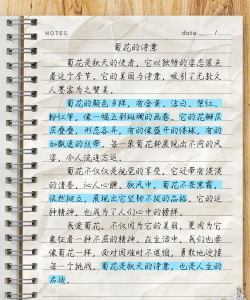 NOTES
date
菊花的诗意
菊花是秋天的使者，它以独特的姿态装点
着这个季节。它的美丽与诗意，吸引了无数文
人墨客为之赞美。
菊花的颜色多样，有金黄、洁白、紫红、
粉红等，像一幅五彩斑斓的画卷。它的花瓣层
层叠叠，形态各异，有的像盛开的绣球，有的
如飘逸的丝带，每一朵菊花都展现出不同的风
姿，令人流连忘返。
菊花不仅仅是视觉的享受，它还带有淡淡
的清香，沁人心脾。秋风中，菊花不畏寒霜，
依然挺立，展现出它坚韧不拔的品格。它的这
种精神，也成为了人们心中的榜样。
我爱菊花，不仅因为它的美丽，更因为它
象征着一种不屈的精神。在生活中，我们也要
像菊花一样，面对困难时不退缩，勇敢地迎接
每一个挑战。菊花是秋天的诗意，也是人生的
启迪。